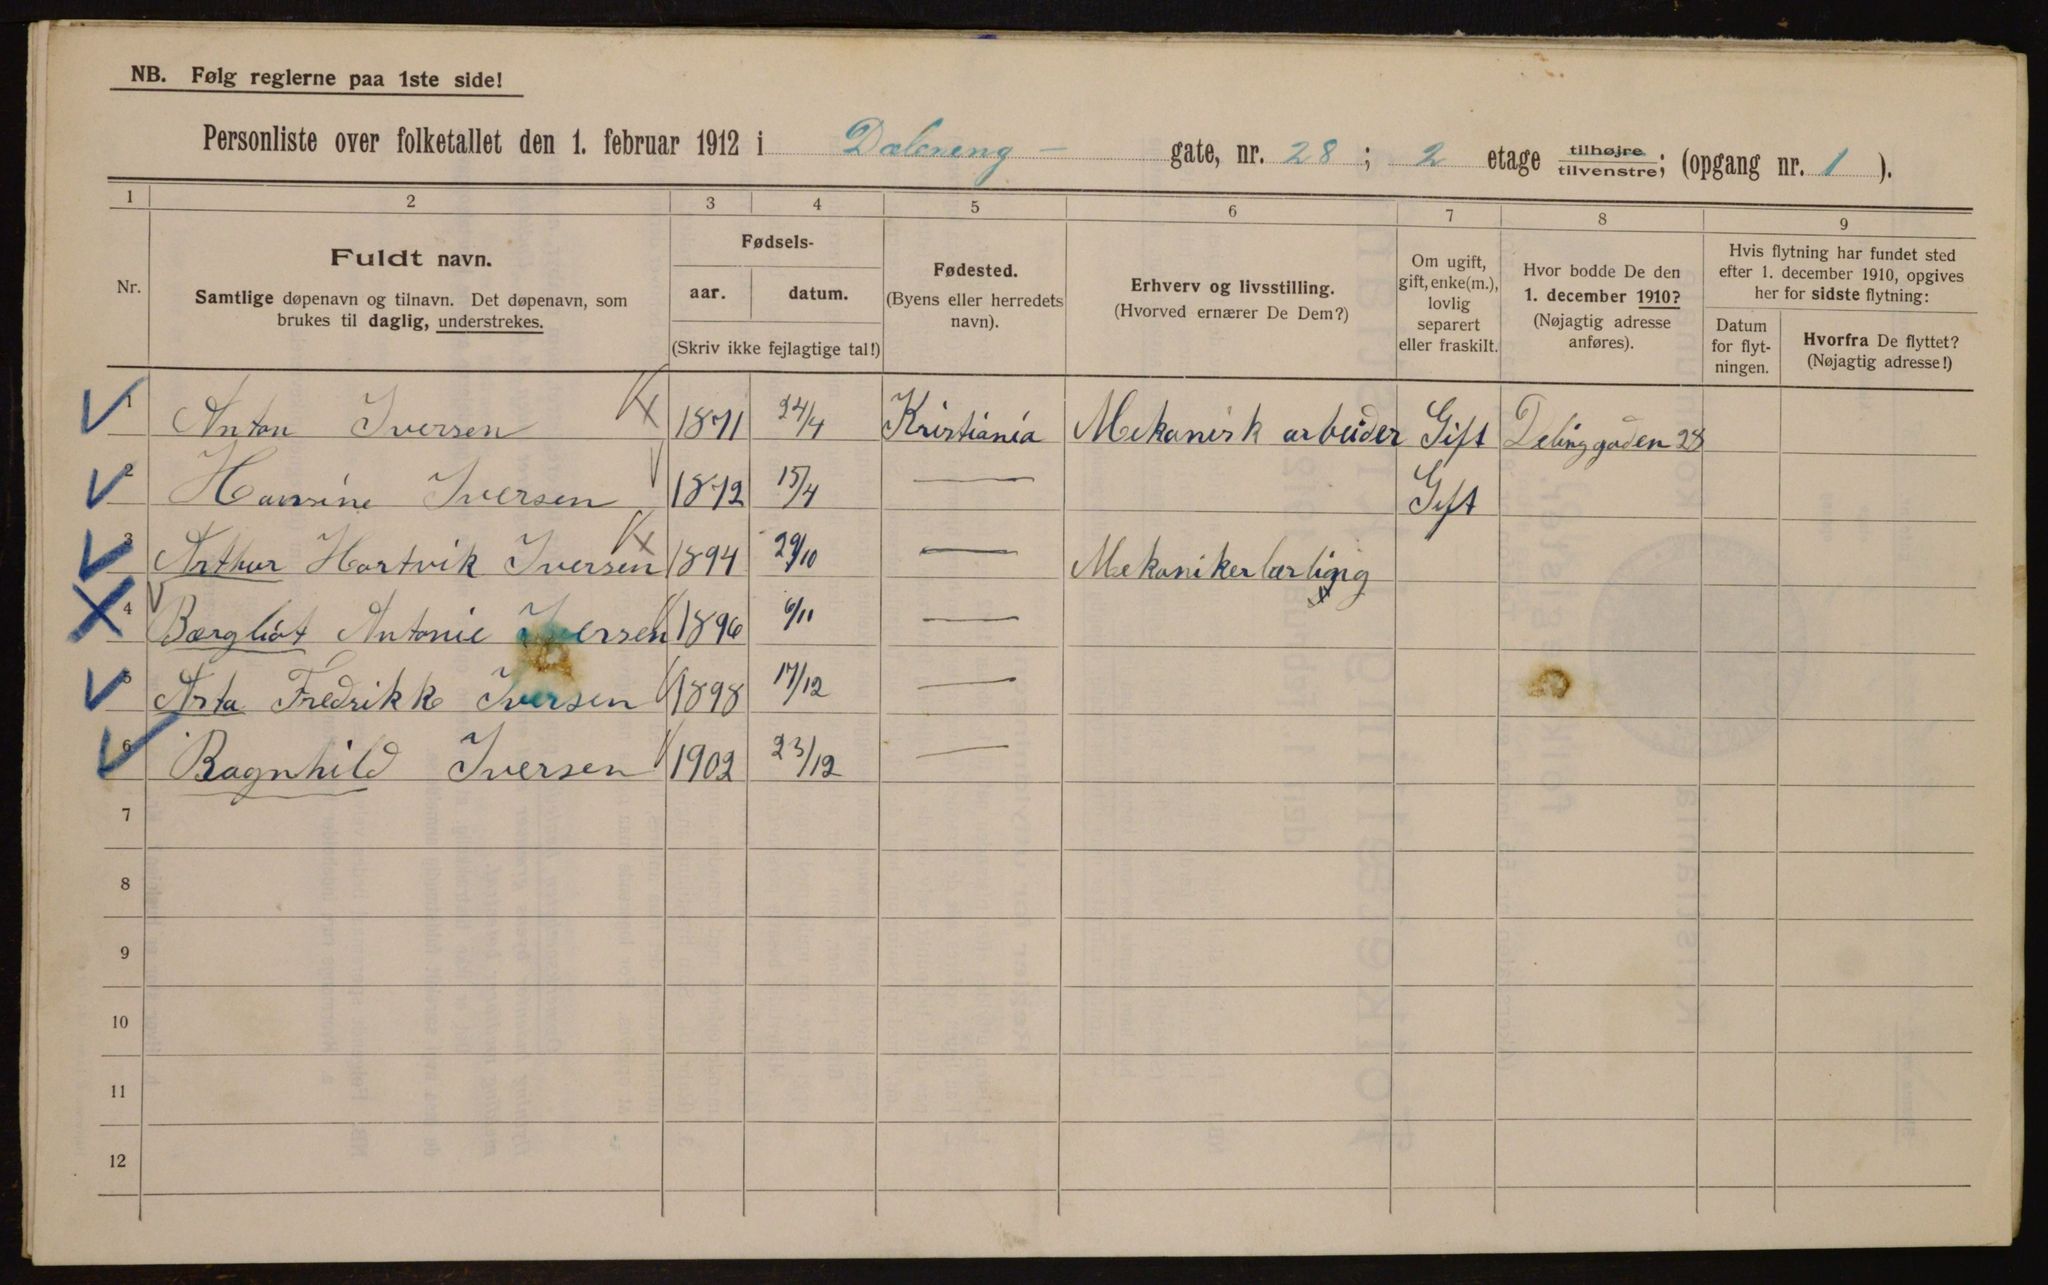 NB. Følg reglerne paa 1ste side!
Personliste over folketallet den 1. februar 1912 i Dæleneng - gate, nr. 28 ; 2 etage tilhøjre tilvenstre; (opgang nr. 1 ).
1 2 3 4 5 6 7 8 9
Nr.
Fuldt navn.
Samtlige døpenavn og tilnavn. Det døpenavn, som
brukes til daglig, understrekes.
Fødsels-
aar. datum.
(Skriv ikke fejlagtige tal!)
Fødested.
(Byens eller herredets
navn).
Erhverv og livsstilling.
(Hvorved ernærer De Dem?)
Om ugift,
gift, enke(m.),
lovlig
separert
eller fraskilt.
Hvor bodde De den
1. december 1910?
(Nøjagtig adresse
anføres).
Hvis flytning har fundet sted
efter 1. december 1910, opgives
her for sidste flytning:
Datum
for flyt-
ningen.
Hvorfra De flyttet?
(Nøjagtig adresse!)
1 Anton Iversen 1871 24/4 Kristiania Mekanisk arbeider Gift Delinggaden 28
2 Hansine Iversen 1872 15/4 — Gift
3 Arthur Hartvik Iversen 1894 29/10 — Mekanikerlærling
4 Bærgliot Antonie Iversen 1896 6/11 —
5 Asta Fredrikke Iversen 1898 17/12 —
6 Ragnhild Iversen 1902 23/12 —
7
8
9
10
11
12